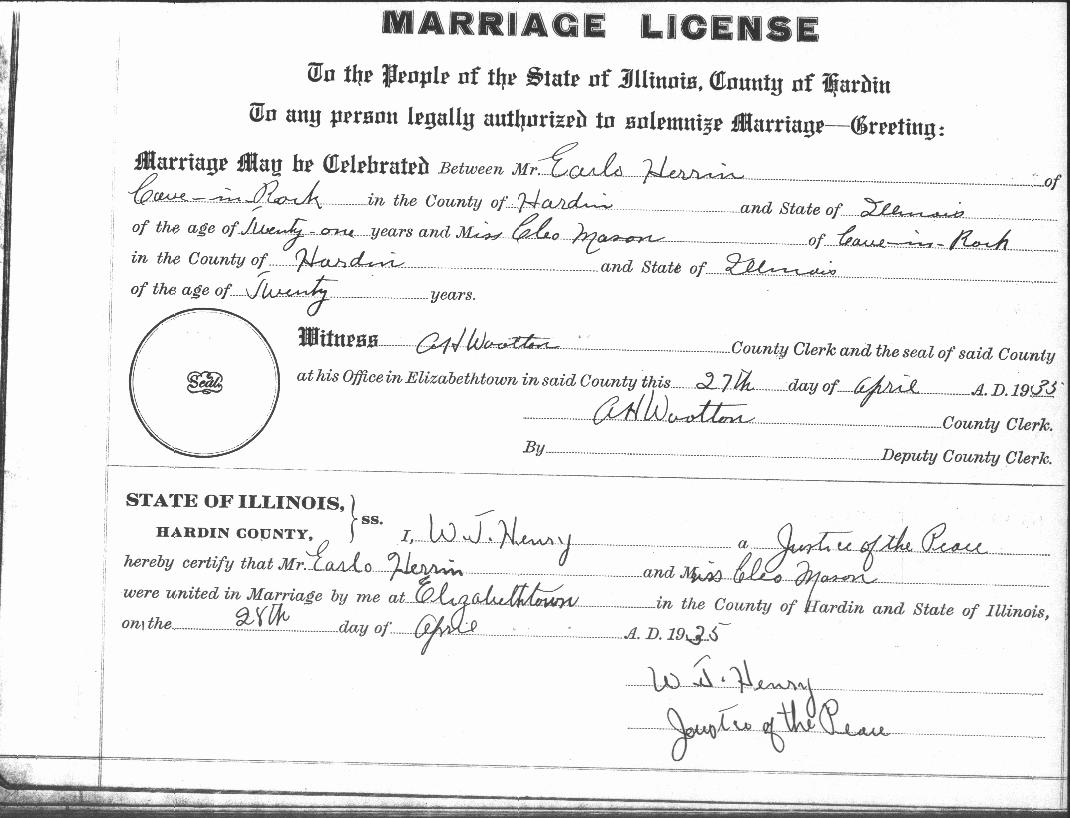 MARRIAGE LICENSE
To the People of the State of Illinois, County of Hardin
To any person legally authorized to solemnize Marriage—Greeting:
Marriage May be Celebrated Between Mr. Earlo Herrin of
Cave-in-Rock in the County of Hardin and State of Illinois
of the age of Twenty-one years and Miss Cleo Mason of Cave-in-Rock
in the County of Hardin and State of Illinois
of the age of Twenty years.
Witness A H Wootton County Clerk and the seal of said County
at his Office in Elizabethtown in said County this 27th day of April A. D. 1935
A H Wootton County Clerk.
By Deputy County Clerk.
Seal
STATE OF ILLINOIS,
HARDIN COUNTY, } ss. I, W. J. Henry a Justice of the Peace
hereby certify that Mr. Earlo Herrin and Miss Cleo Mason
were united in Marriage by me at Elizabethtown in the County of Hardin and State of Illinois,
on the 28th day of April A. D. 1935
W. J. Henry
Justice of the Peace